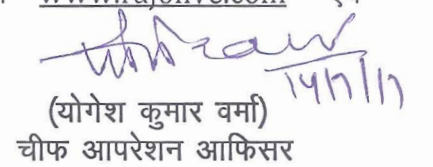 14/7/17
(योगेश कुमार वर्मा)
चीफ आपरेशन आफिसर